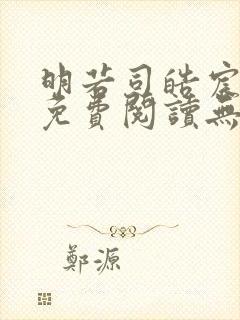 明若司皓宸
免費閱讀無
鄭源